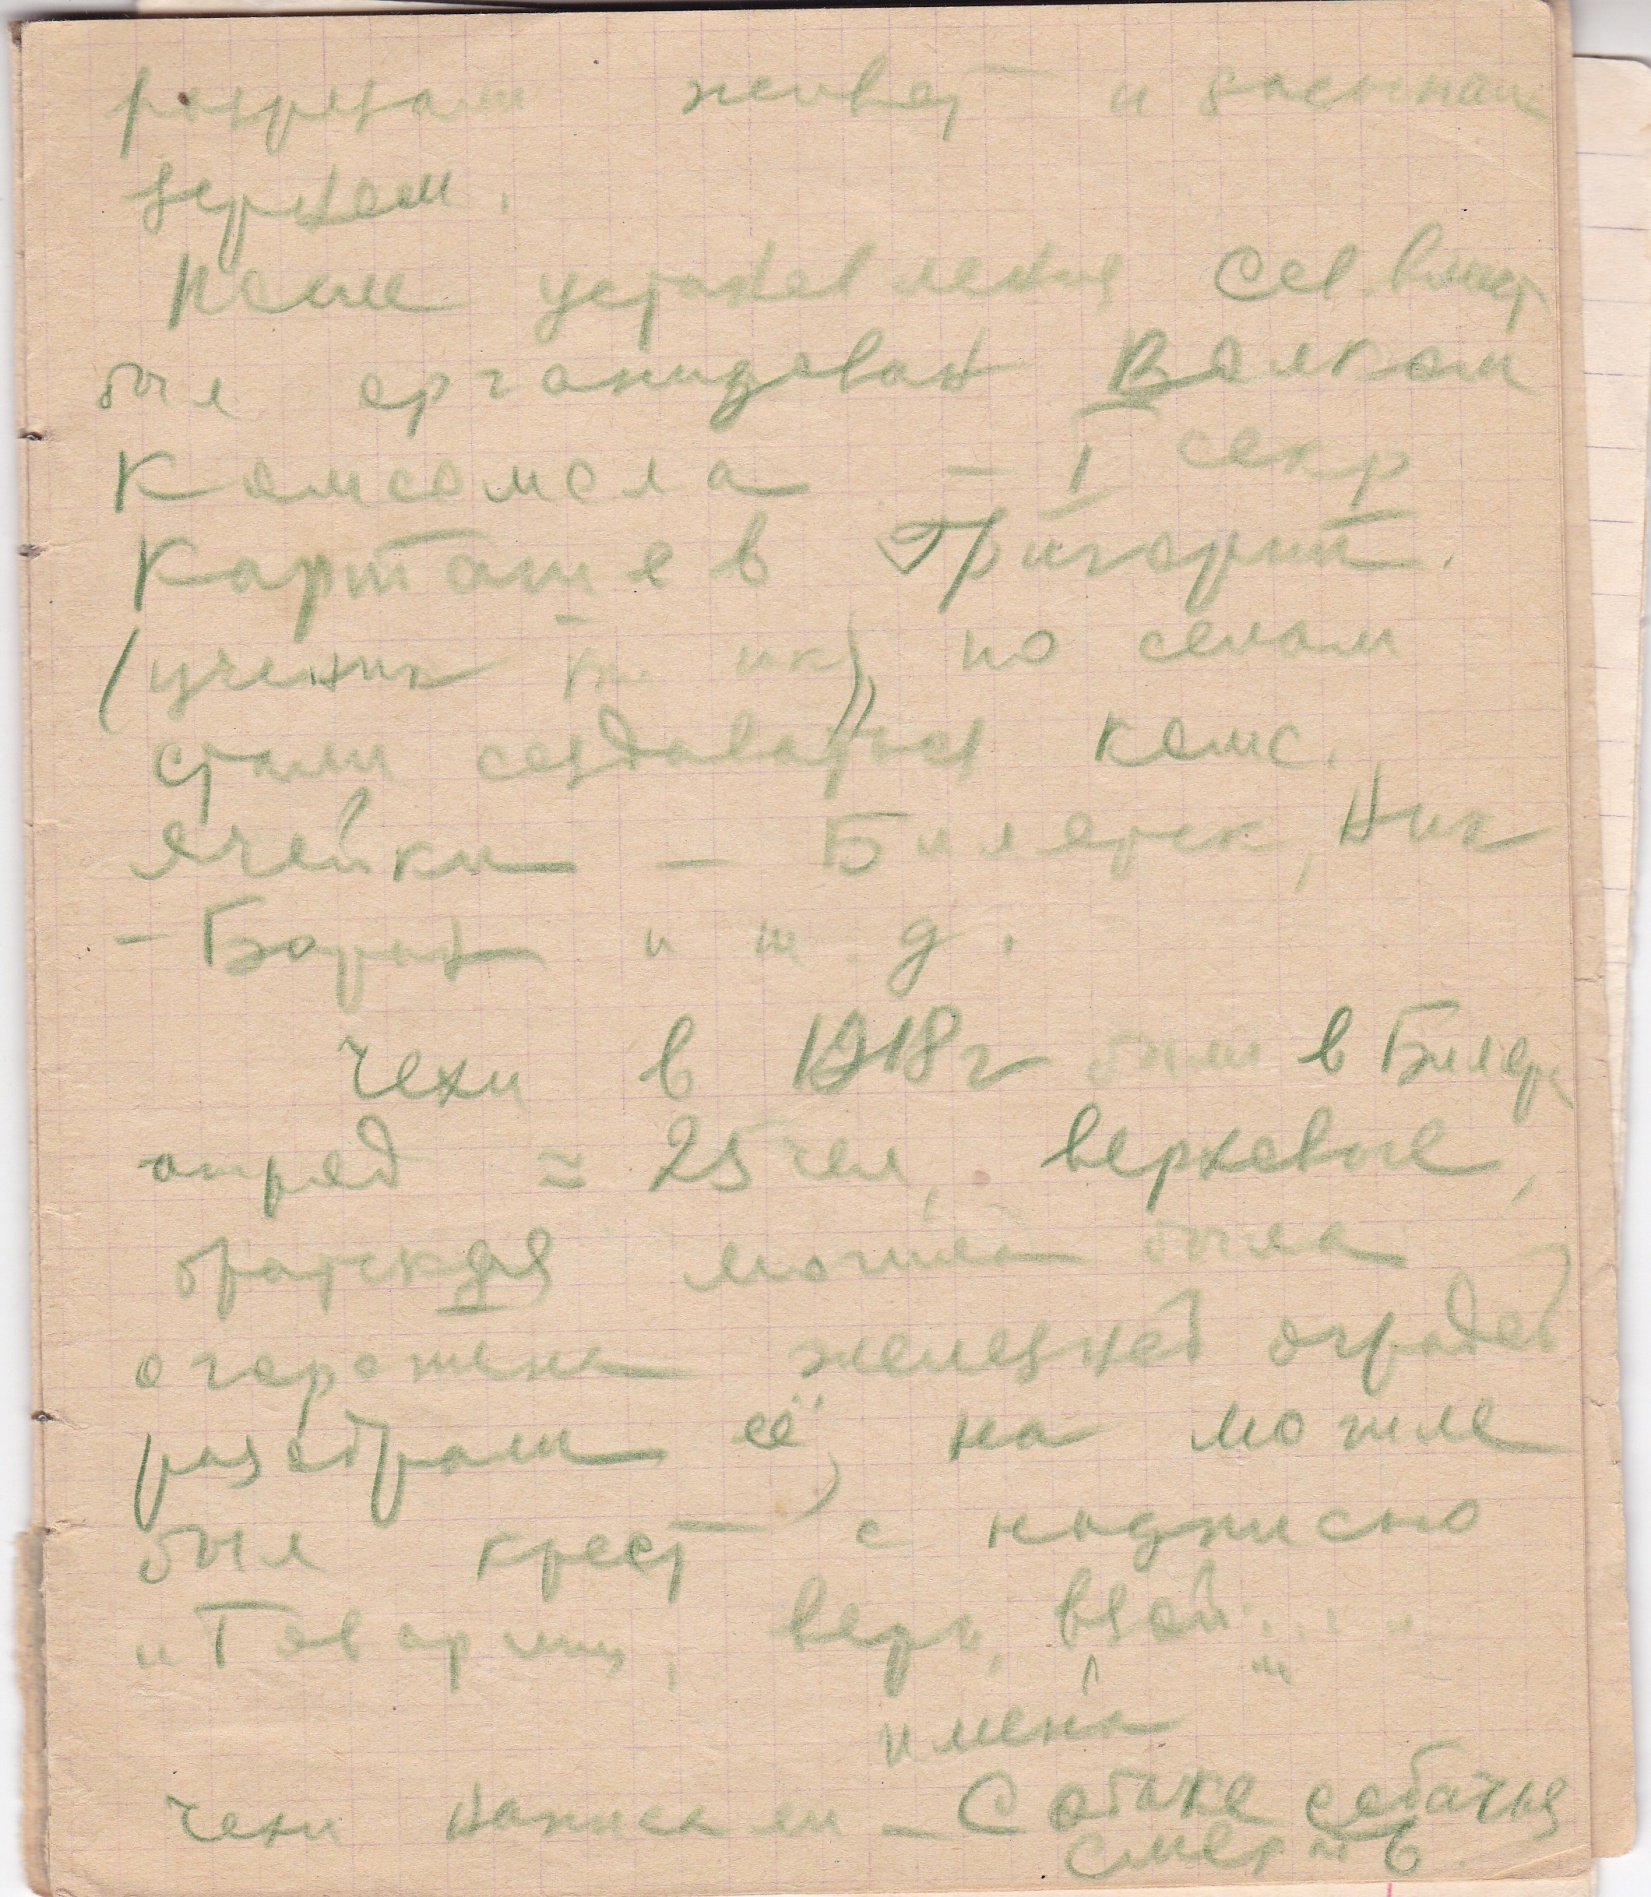 разрезали живот и засыпали
зерном.
После установления Сов. власт
был организован Волком
Комсомола – I секр
Карташев Григорий.
(ученик шк) по селам
стали создаваться комс.
ячейки – Билярск, Ник
– Баран и т. д.
Чехи в 1918г были в Биляр
отряд ≈ 25 чел, верховые,
братская могила была
огорожена железной оградой
разобрали её, на могиле
был крест с надписью
"Товарищ, верь, взой.... "
имена
чехи написали – Собаке собачья
смерть.